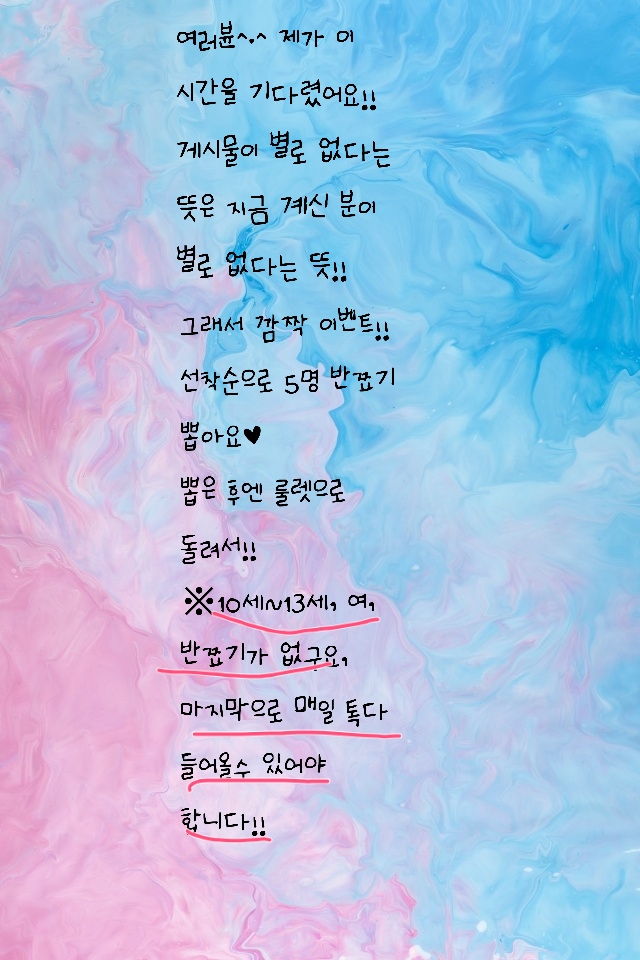 여러뷴^.^ 제가 이
시간을 기다렸어요!!
게시물이 별로 없다는
뜻은 지금 계신 분이
별로 없다는 뜻!!
그래서 깜짝 이벤트!!
선착순으로 5명 반쪼기
뽑아요♥
뽑은 후엔 룰렛으로
돌려서!!
※10세~13세, 여,
반쪼기가 없구요,
마지막으로 매일 톡다
들어올수 있어야
합니다!!